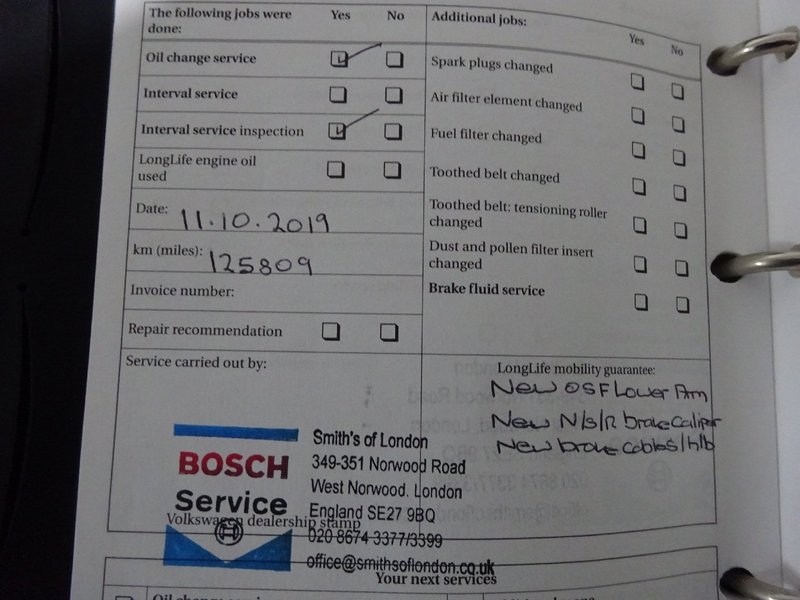 The following jobs were done: Yes No
Oil change service
Interval service
Interval service inspection
LongLife engine oil used
Date: 11.10.2019
km (miles): 125809
Invoice number:
Repair recommendation
Service carried out by:
BOSCH
Service
Smith's of London
349-351 Norwood Road
West Norwood. London
England SE27 9BQ
020 8674 3377/3399
office@smithsoflondon.co.uk
Volkswagen dealership stamp
Additional jobs: Yes No
Spark plugs changed
Air filter element changed
Fuel filter changed
Toothed belt changed
Toothed belt: tensioning roller
changed
Dust and pollen filter insert
changed
Brake fluid service
LongLife mobility guarantee:
New OSF Lower Arm
New N/S/R brake Caliper
New brake cables/h/b
Your next services